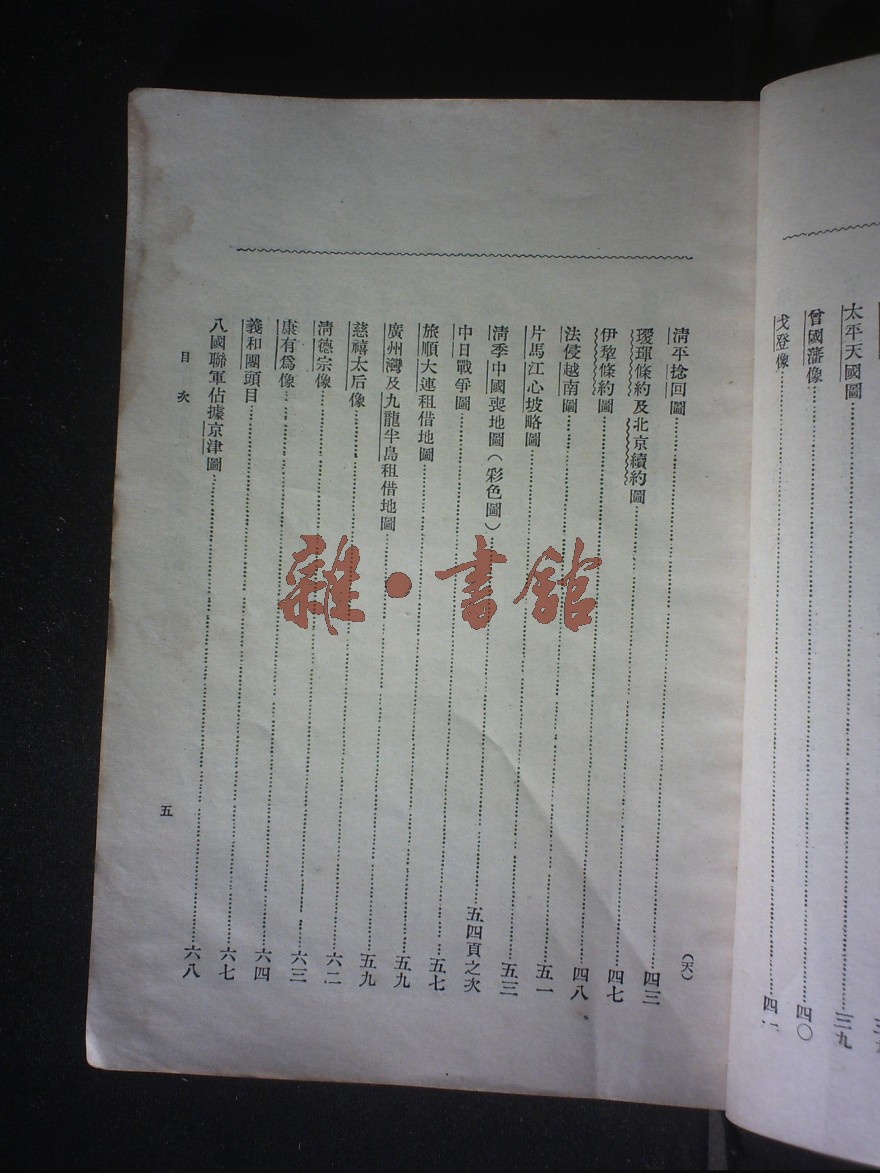 太平天國圖……三九
曾國藩像……四〇
戈登像……四
（天）
清平捻回圖……四三
璦琿條約及北京續約圖……四七
伊犂條約圖……四八
法侵越南圖……五一
片馬江心坡略圖……五三
清季中國喪地圖（彩色圖）……五四頁之次
中日戰爭圖……五七
旅順大連租借地圖……五九
廣州灣及九龍半島租借地圖……五九
慈禧太后像……六二
清德宗像……六三
康有爲像……六四
義和團頭目……六七
八國聯軍佔據京津圖……六八
目次
五
雜·書館